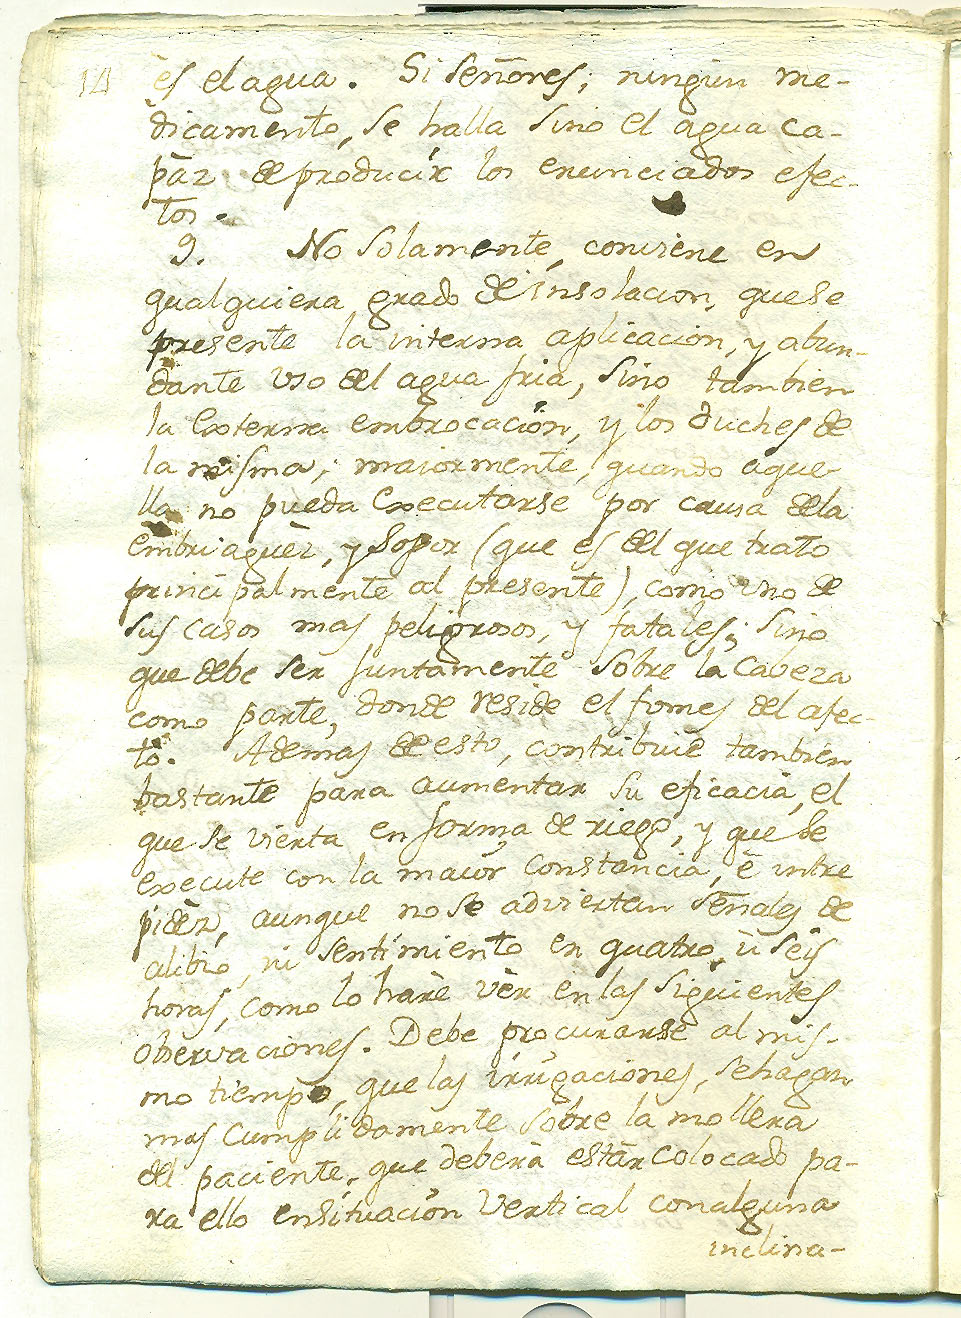 14 ès el agua. Si Señores; ningùn me-
dicamento, se halla sino el agua ca-
pàz de producir los enunciados efec-
tos.
9. No solamente, conviene en
qualquiera grado de insolacion, que se
presente la interna aplicacion, y abun-
dante uso del agua fria, sino tambien
la externa embrocación, y los duches de
la misma; maiormente, quando aque-
lla no pueda executarse por causa de la
embriaguèz, y sopor (que es del que trato
principalmente al presente), como uno de
sus casos mas peligrosos, y fatales; sino
que debe ser juntamente sobre la Cabeza
como parte, donde reside el fomes del afec-
to. Ademas de esto, contribuiè tambien
bastante para aumentar su eficacia, el
que se vierta en forma de riego, y que se
execute con la maiòr constancia, è intre
pidèz, aunque no se adviertan señales de
alibio, ni sentimiento en quatro, ù seis
horas, como lo harè vèr en las siguientes
observaciones. Debe procurarse al mis-
mo tiempo, que las irrigaciones, se hagan
mas cumplidamente sobre la mollera
del paciente, que deberà estàr colocado pa-
ra ello en situación vertical con alguna
inclina-